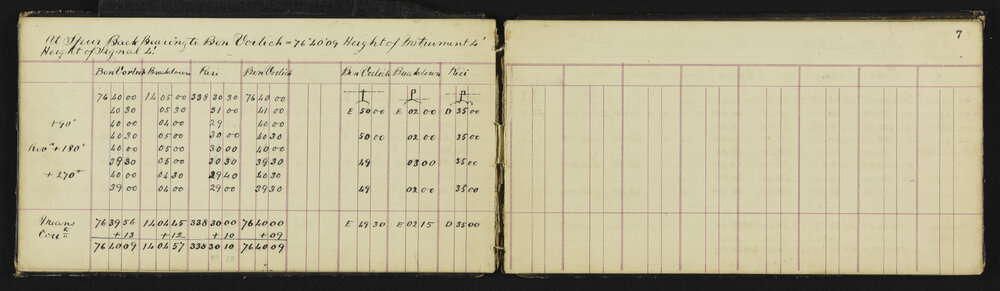 7
At Spur Back Bearing to Ben Vorlich = 76°40'09 Height of Instrument 4'
Height of Signal 4'
Ben Vorlich Breakdown Keri Ben Vorlich Ben Vorlich Breakdown Keri
76 40 00 14 05 00 338 30 30 76 40 00
40 30 05 30 31 00 41 00 E 50 00 E 02 00 D 35 00
+90° 40 00 04 00 29 40 00
40 30 05 00 30 00 40 30 50 00 02 00 35 00
+180° 40 00 05 00 30 00 40 00
39 30 05 00 30 30 39 30 49 03 00 35 00
+270° 40 00 04 30 29 40 40 30
39 00 04 00 29 00 39 30 49 02 00 35 00
Means 76 39 56 14 04 45 338 30 00 76 40 00 E 49 30 E 02 15 D 35 00
Corr +13 +12 +10 +09
76 40 09 14 04 57 338 30 10 76 40 09
50 10